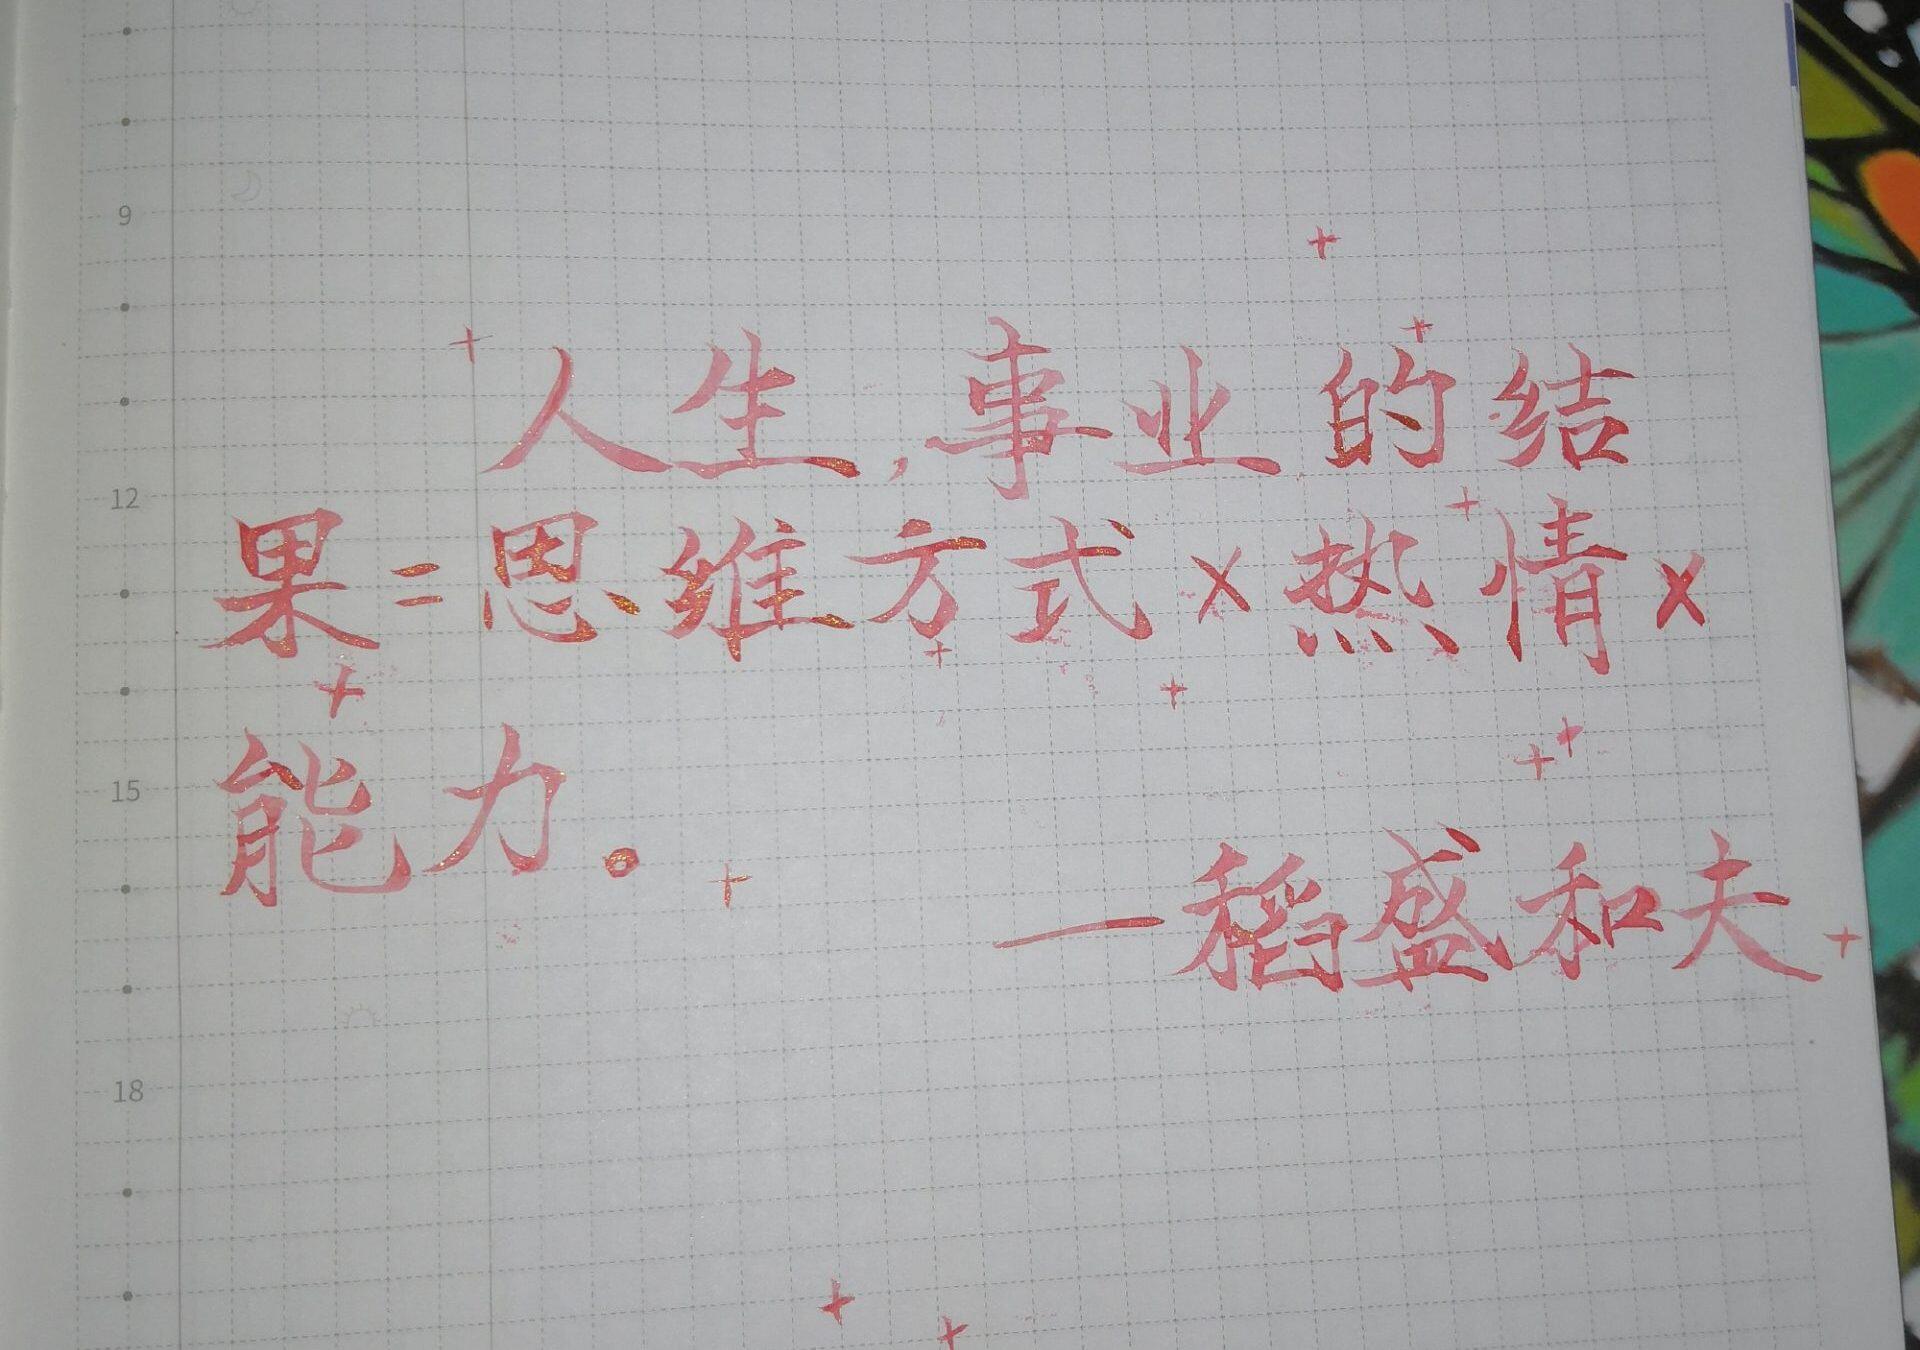 9
人生,事业的结
12
果=思维方式×热情×
能力。
15
—稻盛和夫
18